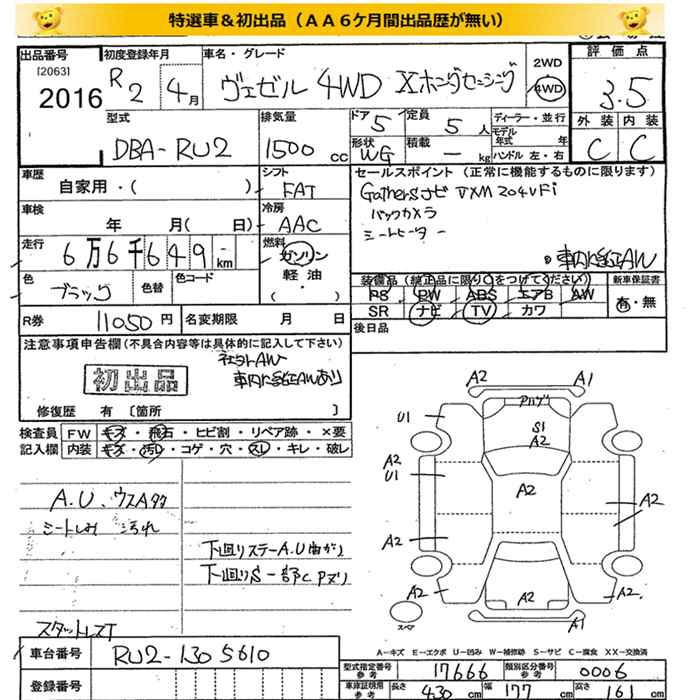 特選車＆初出品（ＡＡ６ケ月間出品歴が無い）
出品番号 初度登録年月 車名・グレード 2WD 評価点
[2063]
2016 R2 4月 ヴェゼル 4WD Xホンダセンシング 4WD 3.5
型式 排気量 ドア 5 定員 5人 ディーラー・並行 外装 内装
DBA-RU2 1500cc 形状 WG 積載 ー kg モデル年式 年 C C
ハンドル 左・右
車歴 シフト セールスポイント（正常に機能するものに限ります）
自家用・( ) FAT Gathersナビ VXM204VFi
車検 冷房 バックカメラ
年 月( 日) AAC シートヒーター
走行 燃料 車内に純正AW
6万6千649 km ガソリン
色 色替 色コード 軽油 装備品（純正品に限り○をつけてください） 新車保証書
ブラック ( ) PS PW ABS エアB AW 有・無
R券 11050円 名変期限 月 日 SR ナビ TV カワ
後日品
注意事項申告欄(不具合内容等は具体的に記入して下さい)
社外AW
初出品 車内に純正AWあり
修復歴 有 〔箇所 〕
検査員 FW キズ・飛石・ヒビ割・リペア跡・×要
記入欄 内装 キズ・汚れ・コゲ・穴・スレ・キレ・破レ
A.U.ウスAタタ
シートしみ こうれ
下廻りステーA.U曲がり
下廻りS一部CPズリ
スタットレスT
A2 A1
アハゲ
U1 S1
A2
A2
U1 A2 A2
A2 A2
A2 A2 A2
スペア A1
A－キズ E－エクボ U－凹み W－補修跡 S－サビ C－腐食 XX－交換済
車台番号 RU2-1305610
登録番号
型式指定番号 参考 17666 類別区分番号 参考 0006
車庫証明用 参考 長さ 430cm 幅 177cm 高さ 161cm